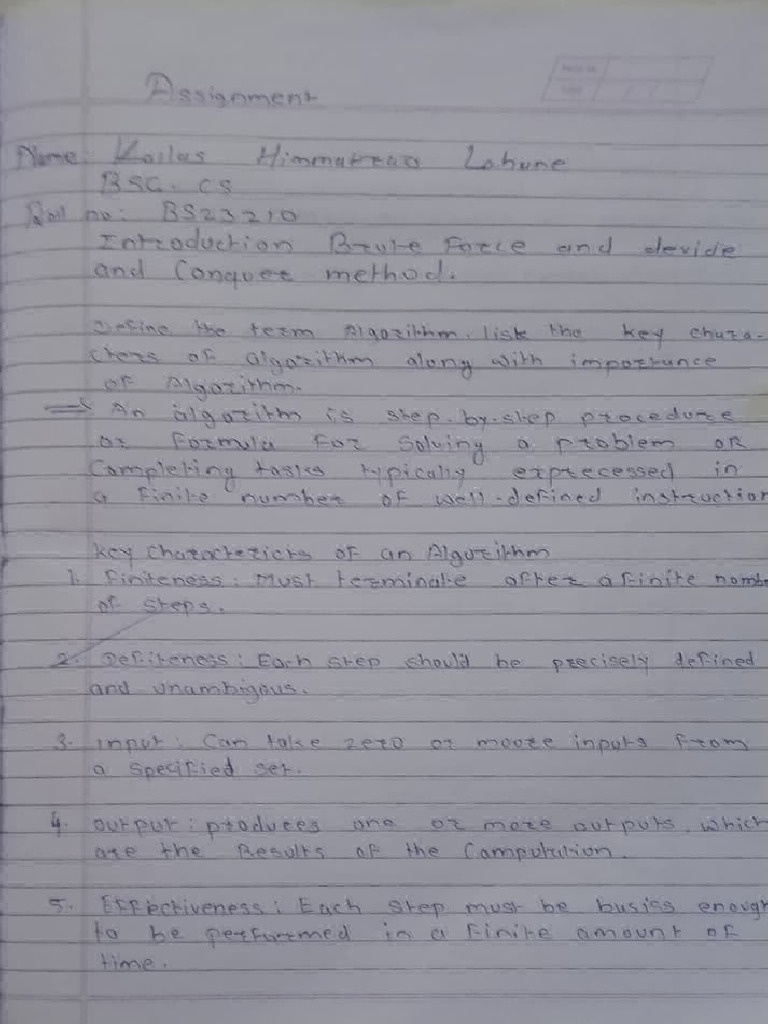 Assignment
Name: Kailas Himmatrao Lahune
BSC. CS
Roll no: BS23210
Introduction Brute Force and devide
and Conquer method.
Define the term Algorithm. list the key chara-
cters of algorithm along with importance
of Algorithm.
⇒ An algorithm is step-by-step procedure
or Formula For Solving a problem OR
Completing tasks typically exprecessed in
a Finite number of well-defined instruction
Key Characterictcs of an Algorithm
1. Finiteness: Must terminate after a finite numbe
of steps.
2. Defiteness: Each step should be precisely defined
and unambigous.
3. input: Can take zero or moore inputs From
a specified set.
4. output: produces one or more outputs, which
are the Results of the Computation.
5. Effectiveness: Each step must be busiss enough
to be perfurmed in a finite amount of
time.